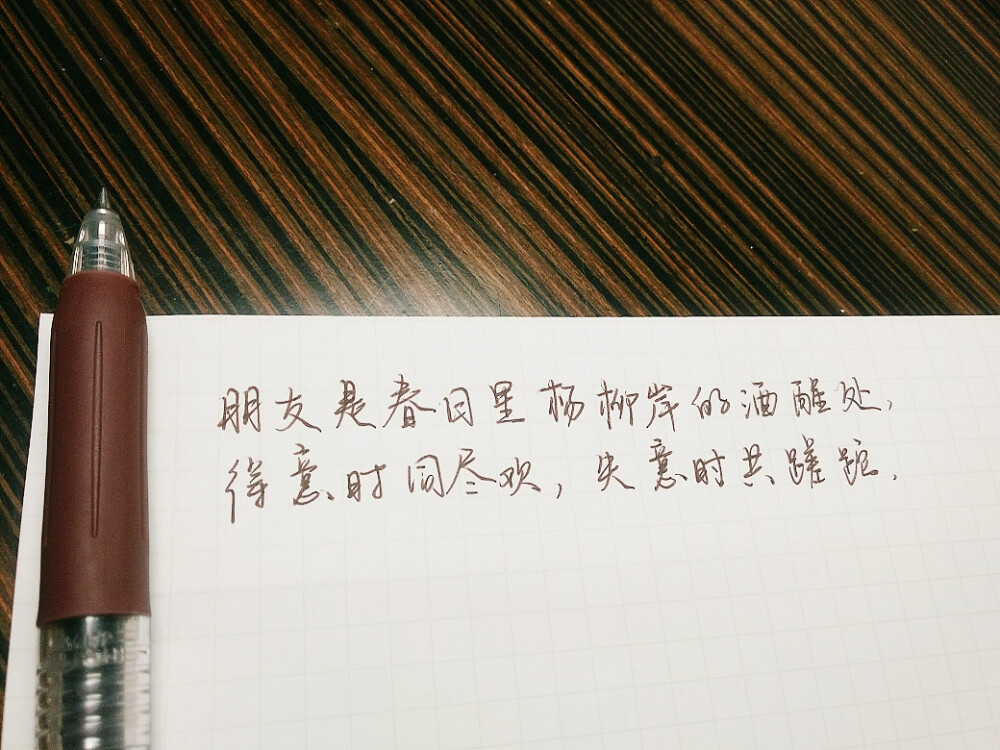 朋友是春日里杨柳岸的酒醒处,
得意时同尽欢,失意时共蹉跎.